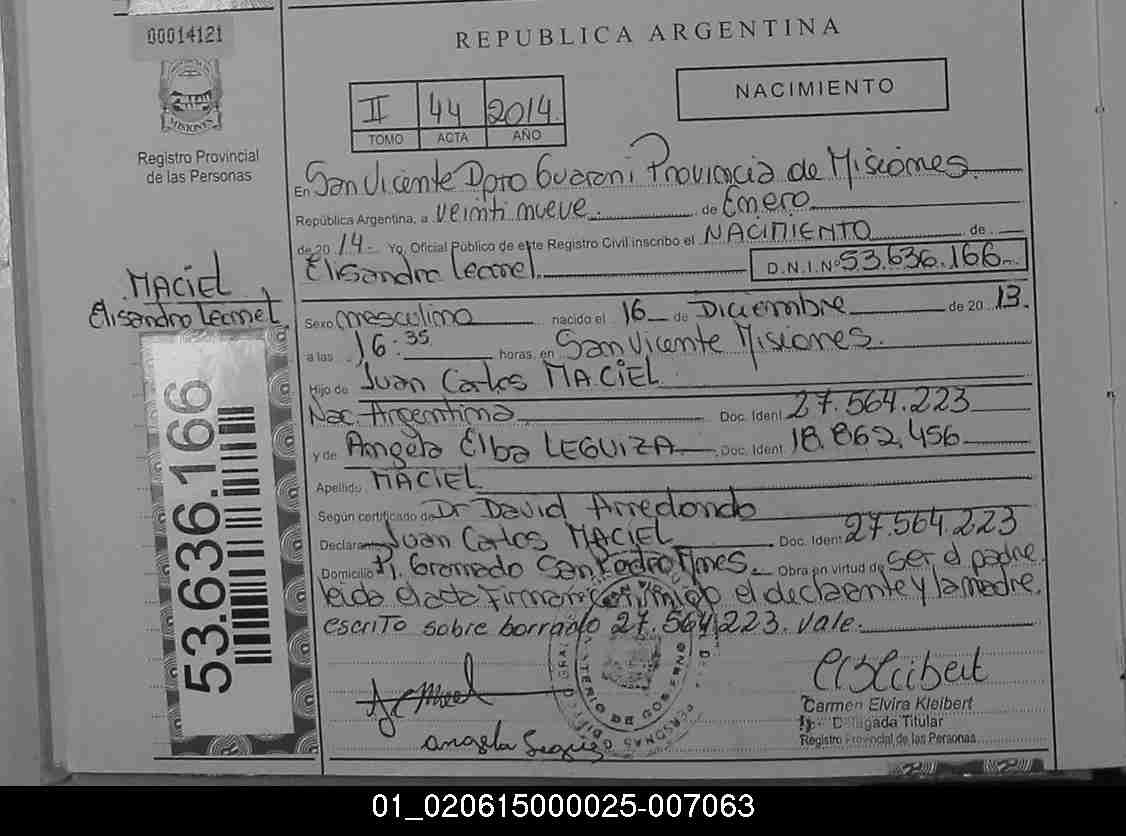 00014121
REPUBLICA ARGENTINA
MISIONES
Registro Provincial
de las Personas
II 44 2014
TOMO ACTA AÑO
NACIMIENTO
En San Vicente Dpto Guaraní Provincia de Misiones
República Argentina, a veinti nueve de Enero
de 2014 Yo, Oficial Público de este Registro Civil inscribo el NACIMIENTO de
Elisandro Leonel D.N.I.Nº 53.636.166
MACIEL
Elisandro Leonel
Sexo masculino nacido el 16 de Diciembre de 2013.
a las 16:35 horas, en San Vicente Misiones.
Hijo de Juan Carlos MACIEL
Nac. Argentina Doc. Ident 27.564.223
y de Angela Elba LEGUIZA Doc. Ident 18.862.456
Apellido MACIEL
Según certificado de Dr David Arredondo
Declarante Juan Carlos MACIEL Doc. Ident 27.564.223
Domicilio Pj. Gramado San Pedro Mnes. Obra en virtud de ser el padre
leida el acta firman conmigo el declarante y la madre.
escrito sobre borrado 27.564.223. vale.
53.636.166
MINISTERIO DE GOBIERNO
Carmen Elvira Kleibert
Delegada Titular
Registro Provincial de las Personas
angela
01_020615000025-007063